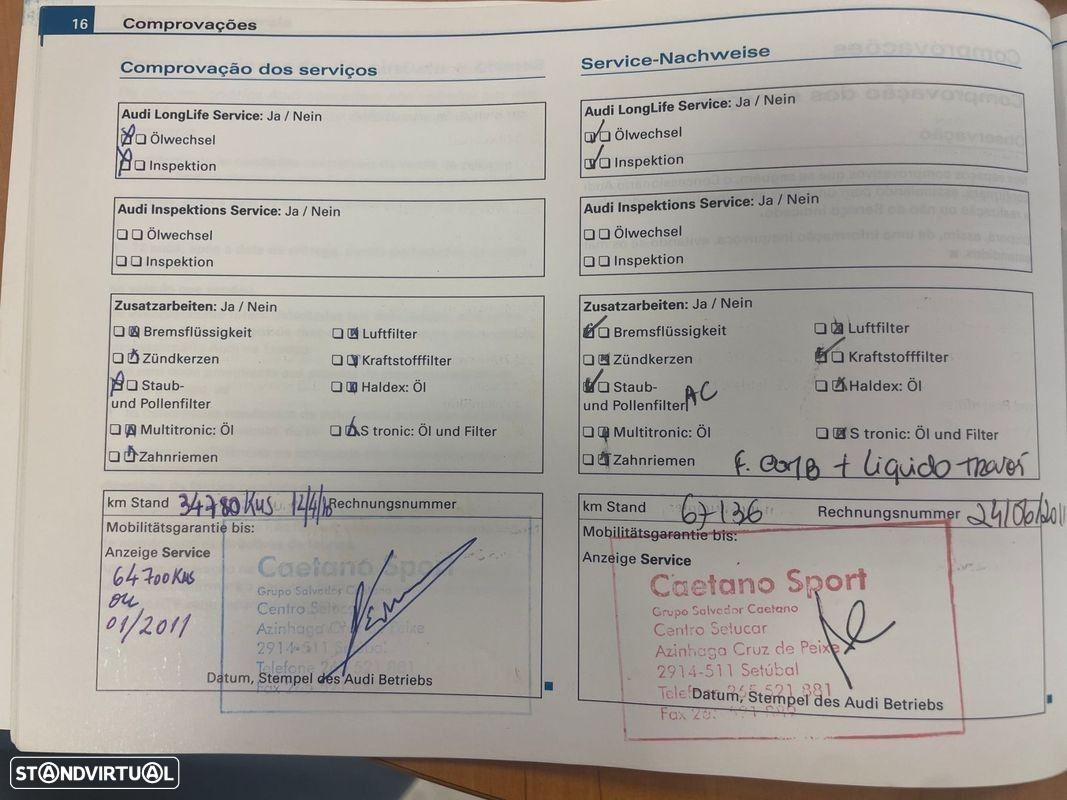 16 Comprovações
Comprovação dos serviços
Audi LongLife Service: Ja / Nein
Ölwechsel
Inspektion
Audi Inspektions Service: Ja / Nein
Ölwechsel
Inspektion
Zusatzarbeiten: Ja / Nein
Bremsflüssigkeit
Luftfilter
Zündkerzen
Kraftstofffilter
Staub-
und Pollenfilter
Haldex: Öl
Multitronic: Öl
S tronic: Öl und Filter
Zahnriemen
km Stand 34780 Kms 12/4/10 Rechnungsnummer
Mobilitätsgarantie bis:
Anzeige Service
64700 Kms
ou
01/2011
Caetano Sport
Grupo Salvador Caetano
Centro Setucar
Azinhaga Cruz de Peixe
2914-511 Setúbal
Telefone 265 521 881
Datum, Stempel des Audi Betriebs
Service-Nachweise
Audi LongLife Service: Ja / Nein
Ölwechsel
Inspektion
Audi Inspektions Service: Ja / Nein
Ölwechsel
Inspektion
Zusatzarbeiten: Ja / Nein
Bremsflüssigkeit
Luftfilter
Zündkerzen
Kraftstofffilter
Staub-
und Pollenfilter AC
Haldex: Öl
Multitronic: Öl
S tronic: Öl und Filter
Zahnriemen
F. comb + Liquido travões
km Stand 67136 Rechnungsnummer 24/06/2011
Mobilitätsgarantie bis:
Anzeige Service
Caetano Sport
Grupo Salvador Caetano
Centro Setucar
Azinhaga Cruz de Peixe
2914-511 Setúbal
Telefone 265 521 881
Datum, Stempel des Audi Betriebs
STANDVIRTUAL